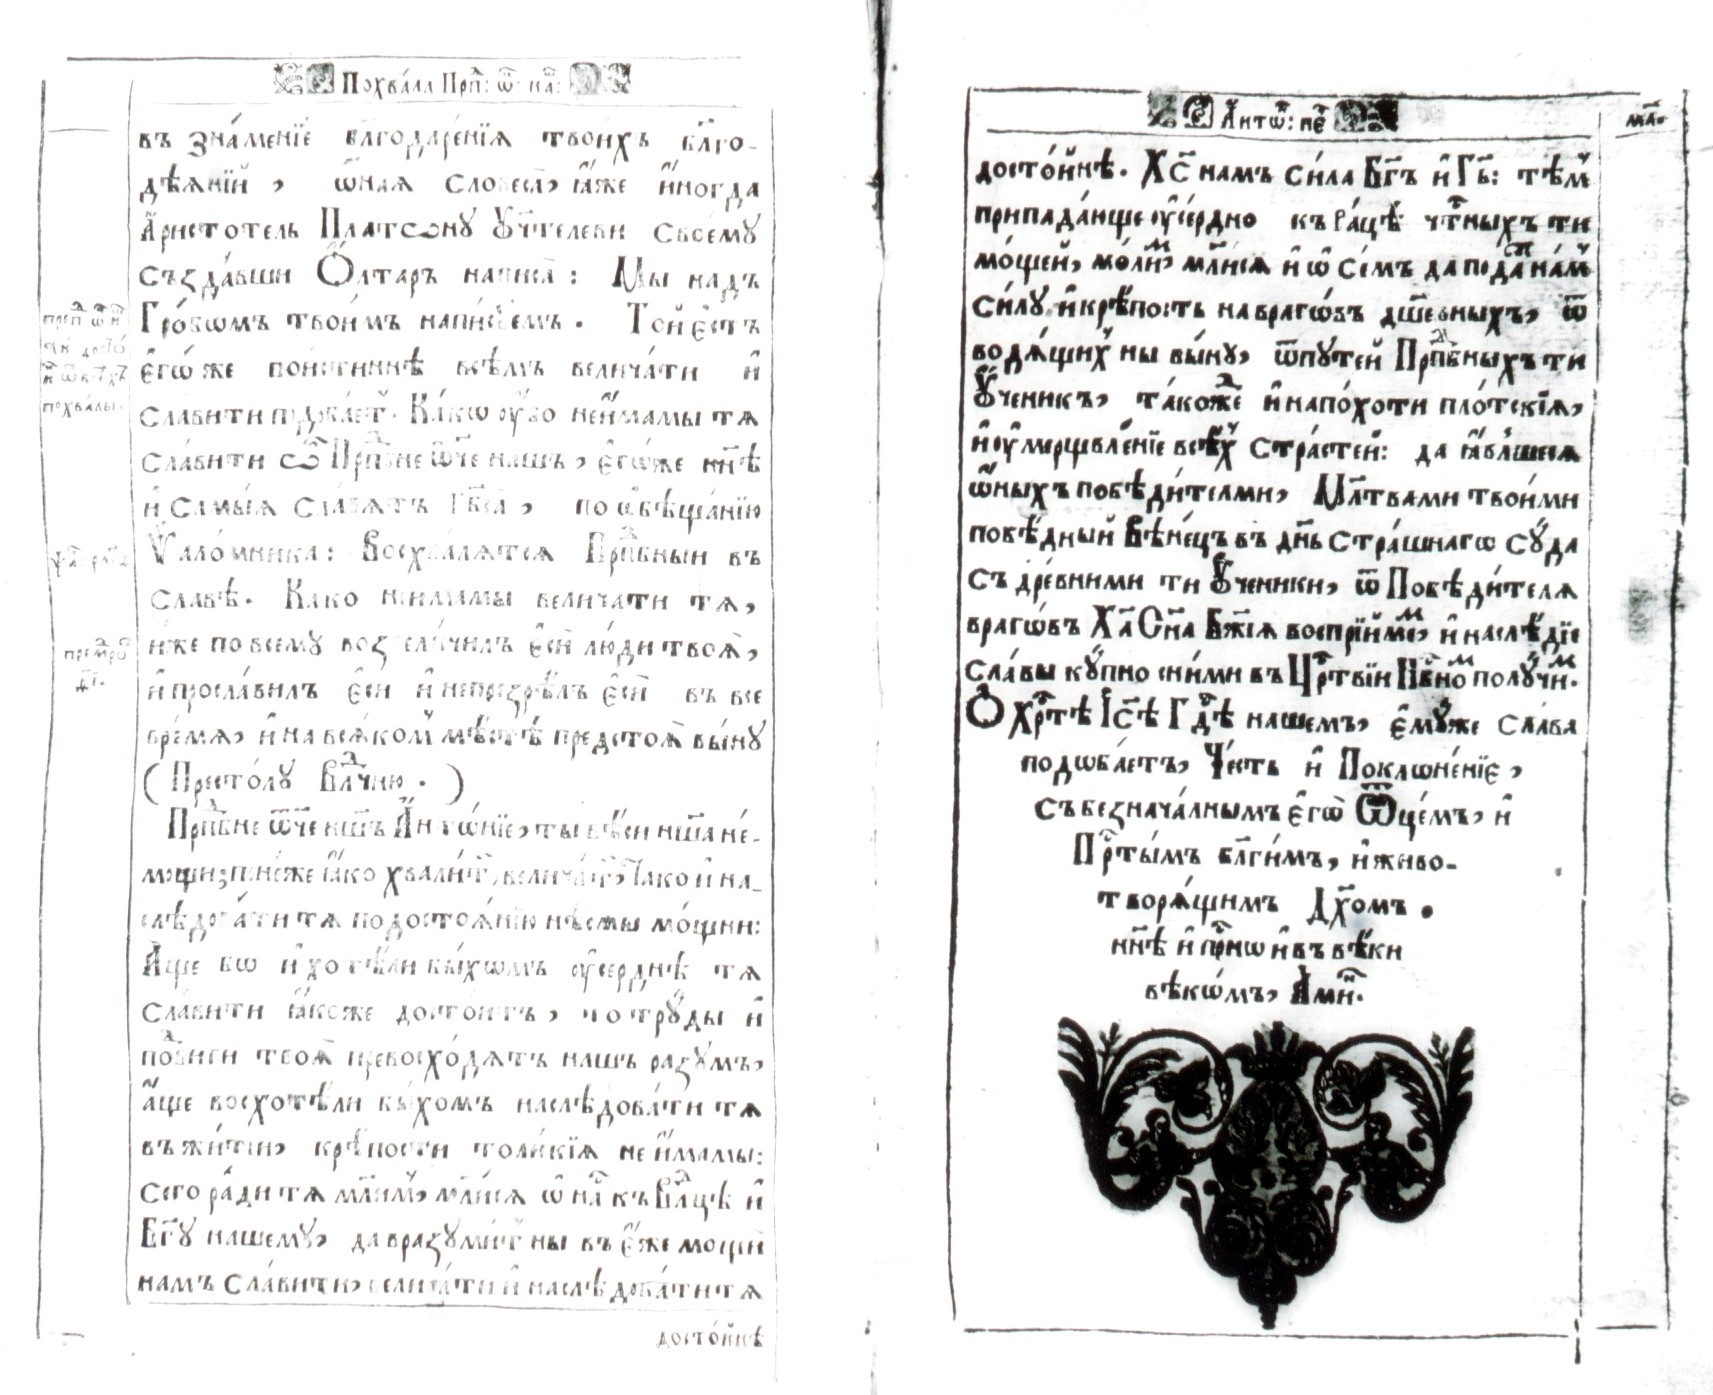 Похва́ла Прпⷣ: ѿ: на҃:
въ зна́менїе блгодаре́нїѧ твои́хъ бл҃го-
дѣѧнїй , ѡ҆́наѧ словеса̀, ꙗ҆̀же и҆ногда
А҆ристотель Платѡну Ѹ҆чт҃елеви своемꙋ
създа́вши Ѻ҆лтаръ написа̀ : Мы надъ
Гро́бомъ твои́мъ напи́шемъ . Той є҆́стъ
є҆гѡ́же пои́стиннѣ всѣ́мъ велича́ти и҆
сла́вити подоба́етъ . Ка́кѡ ᲂу҆́бо неи́мамы тѧ
сла́вити ѽ Прпⷣбне ѡ҆́че нашъ , є҆гѡ́же нн҃ѣ
и҆ Самы́ѧ сла́вѧтъ , по ѡ҆бѣща́нїю
Ѱало́мника : Восхва́лѧтсѧ Прпⷣбнын въ
сла́вѣ . Како неи́мамы велича́ти тѧ ,
и҆́же по всемꙋ возвели́чилъ є҆сѝ лю́ди твоѧ̀ ,
и҆ просла́вилъ є҆си и҆ непрезрѣ́лъ є҆сѝ въ все
вре́мѧ , и҆ на всѧ́комъ мѣ́стѣ предстоѧ̀ вы́нꙋ
( Престо́лꙋ Влⷣчню . )
Прпⷣбне ѿче нш҃ъ А҆нтѡ́нїе , ты вѣ́си нш҃а не́-
мощи , поне́же ꙗ҆́ко хвали́ти , велича́ти , ꙗ҆ко и҆ на-
слѣдова́ти тѧ по достоѧ́нїю нѣ́смы мо́щни :
А҆́ще бѡ и҆ хотѣ́ли бы́хомъ ᲂу҆се́рднѣ тѧ
сла́вити ꙗ҆́коже достои́тъ , но трꙋ́ды и҆
по́двиги твоѧ̀ превосхо́дѧтъ нашъ разꙋмъ ,
а҆́ще восхотѣ́ли бы́хомъ наслѣ́дова́ти тѧ
въ житїи , крѣ́пости толи́кїѧ не и҆́мамы :
Сего ра́ди тѧ мл҃имъ , мл҃исѧ ѡ҆ на҃ къ Влⷣцѣ и҆
Бг҃ꙋ нашемꙋ , да вразꙋми́тъ ны въ є҆́же мощи
намъ сла́вити , велича́ти и҆ наслѣдова́ти тѧ
досто́йнѣ
похва́лы .
А҆нтѡⷩ : пеⷱ
ма҃ .
досто́йнѣ . Хс҃ намъ си́ла Бг҃ъ и҆ Гь҃ : тѣ́мъ
припада́юще ᲂу҆се́рдно къ Ра́цѣ чт҃ныхъ ти
мо́щей , мо́лимъ мл҃исѧ и҆ ѡ҆ се́мъ да пода́стъ на́мъ
си́лꙋ и҆ крѣ́пость на врагѡ́въ дш҃евныхъ , ѿ
водѧ́щихъ ны вы́нꙋ , ѿ пꙋтей Прпⷣбныхъ ти
Ѹ҆́ченикъ , та́коже и҆ на по́хоти пло́тскїѧ ,
и҆ ᲂу҆мерщвле́нїе всѣ́хъ страсте́й : да ꙗ҆вльшесѧ
ѡ҆́ныхъ побѣди́телми , Мл҃твами твои́ми
побѣ́дный Вѣне́цъ въ дн҃ь стра́шнагѡ сꙋда
съ дре́вними ти Ѹ҆ченики , ѿ Побѣди́телѧ
врагѡ́въ Ха҃ Сн҃а Бж҃їѧ воспрїи́мемъ , и҆ наслѣ́дїе
сла́вы кꙋ́пно сни́ми въ Црⷭ҇твїи Нбⷭ҇номъ полꙋ́чимъ .
Ѻ҆ Хрⷭ҇тѣ І҆с҃ѣ Гдⷭ҇ѣ нашемъ , є҆мꙋ́же слава
подѡба́етъ , Че́сть и҆ Поклѡне́нїе ,
съ безнача́лнымъ є҆гѡ̀ Ѿце́мъ , и҆
Прⷭ҇ты́мъ бл҃ги́мъ , и҆ живо-
творѧ́щимъ Дх҃омъ .
нн҃ѣ и҆ при́снѡ и҆ въ вѣ́ки
вѣкѡ́мъ , А҆ми́нь .